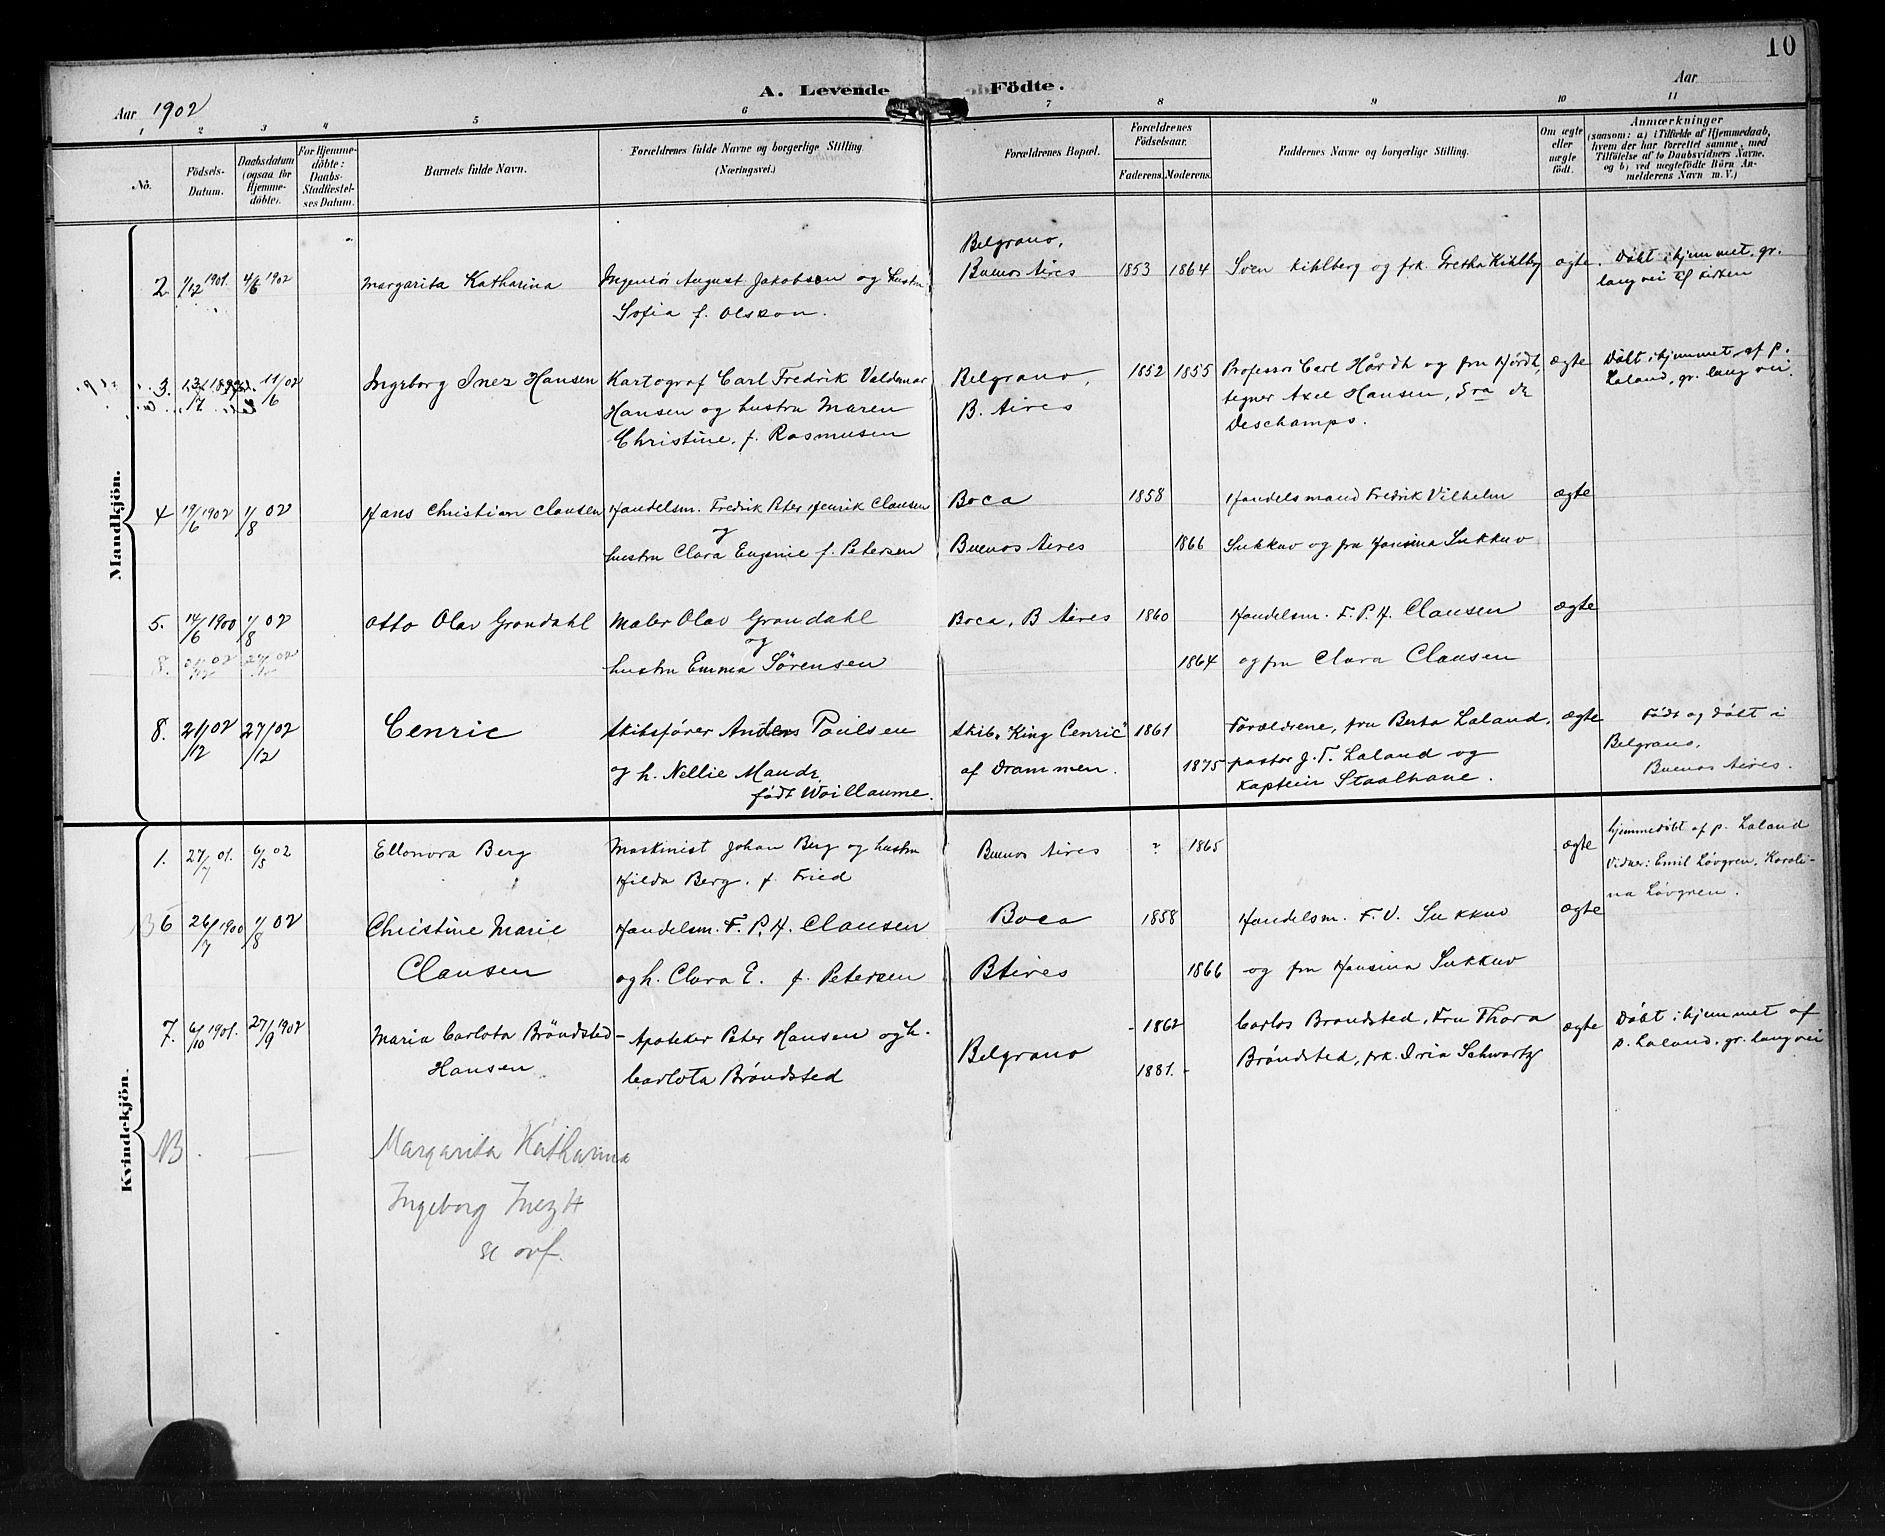 10
A. Levende Födte.
Aar 1902
Aar
1 2 3 4 5 6 7 8 9 10 11
Nô.
Födsels-Datum.
Daabsdatum (ogsaa for Hjemme-döbte).
For Hjemme-döbte: Daabs-Stadfæstel-ses Datum.
Barnets fulde Navn.
Forældrenes fulde Navne og borgerlige Stilling (Næringsvei.)
Forældrenes Bopæl.
Forældrenes Födselsaar.
Faderens. Moderens.
Faddernes Navne og borgerlige Stilling.
Om ægte eller uægte födt.
Anmærkninger
(saasom: a) i Tilfælde af Hjemmedaab,
hvem der har forrettet samme, med
Tilföielse af to Daabsvidners Navne.
og b) ved uægtefödte Börn An-
melderens Navn m. V.)
Mandkjön.
Belgrano,
2. 1/12 1901. 4/6 1902 Margarita Katharina Ingeniör August Jakobsen og hustru Buenos Aires 1853 1864 Sven Kihlberg og frk. Gretha Kihlberg ægte. Döbt i hjemmet, gr.
Sofia f. Olsson. lang vei til kirken
3. 11/6 02 Ingeborg Inez Hansen Kartograf Carl Fredrik Valdemar Belgrano, 1852 1855 Professor Carl Hårdh og fru Hårdh, ægte Döbt i hjemmet af p.
Hansen og hustru Maren B. Aires tegner Axel Hansen, Sra de Laland, gr. lang vei.
Christine, f. Rasmusen Deschamps.
4 19/6 1902 1/8 02 Hans Christian Clausen Handelsm. Fredrik Peter Henrik Clausen Boca 1858 Handelsmand Fredrik Vilhelm ægte
og
hustru Clara Eugenie f. Petersen Buenos Aires 1866 Sukkuv og fru Hansina Sukkuv
5. 14/6 1900 1/8 02 Otto Olav Grondahl Maler Olav Grondahl Boca, B Aires 1860 Handelsm. F. P. H. Clausen ægte
og
8. hustru Emma Sörensen 1864 og fru Clara Clausen
8. 21/12 02 27/12 02 Cenric Skibsförer Anders Poulsen Skib "King Cenric" 1861 Forældrene, fru Berta Laland, ægte Födt og döbt i
og h. Nellie Maude, af Drammen. 1875 pastor J. T. Laland og Belgrano,
födt Woillaume. kaptein Staalhane. Buenos Aires.
Kvindekjön.
1. 27/7 01. 6/5 02 Ellonora Berg Maskinist Johan Berg og hustru Buenos Aires ? 1865 ægte hjemmedöbt af p. Laland
Hilda Berg. f. Fried Vidner: Emil Lövgren, Karoli-
na Lövgren.
6 26/7 1900 1/8 02 Christine Marie Handelsm. F. P. H. Clausen Boca 1858 Handelsm. F. V. Sukkuv ægte
Clausen og h. Clara E. f. Petersen B Aires 1866 og fru Hansina Sukkuv
7. 6/10 1901. 27/9 1902 Maria Carlota Bröndsted- Apoteker Peter Hansen og h. Belgrano 1862 Carlos Brondsted, Fru Thora ægte Döbt i hjemmet af
Hansen Carlota Bröndsted 1881. Bröndsted, frk. Iria Schwartz p. Laland, gr. lang vei
NB Margarita Katharina
Ingeborg Inez H
se ovf.